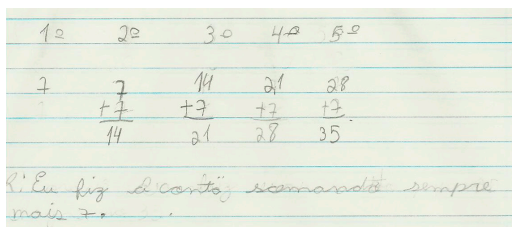 1º 2º 3º 4º 5º
7 7 14 21 28
+7 +7 +7 +7
14 21 28 35.
R: Eu fiz a conta somando sempre
mais 7.